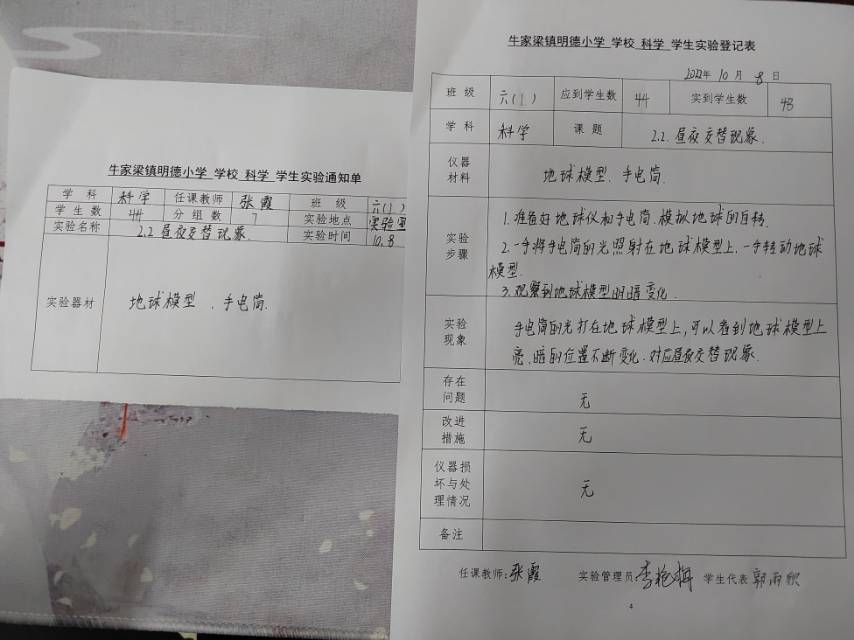 牛家梁镇明德小学 学校 科学 学生实验通知单
学 科 科学 任课教师 张霞 班 级 六(1)
学 生 数 44 分 组 数 7 实验地点 实验室
实验名称 2.2 昼夜交替现象. 实验时间 10.8
实验器材 地球模型 、手电筒.
牛家梁镇明德小学 学校 科学 学生实验登记表
2022年 10 月 8 日
班 级 六(1) 应到学生数 44 实到学生数 43
学 科 科学 课 题 2.2. 昼夜交替现象.
仪器
材料
地球模型. 手电筒.
实验
步骤
1. 准备好地球仪和手电筒. 模拟地球的自转.
2. 一手将手电筒的光照射在地球模型上. 一手转动地球
模型.
3. 观察到地球模型明暗变化.
实验
现象
手电筒的光打在地球模型上, 可以看到地球模型上
亮、暗的位置不断变化. 对应昼夜交替现象.
存在
问题
无
改进
措施
无
仪器损
坏与处
理情况
无
备注
任课教师: 张霞 实验管理员: 李艳 学生代表 郭雨
4